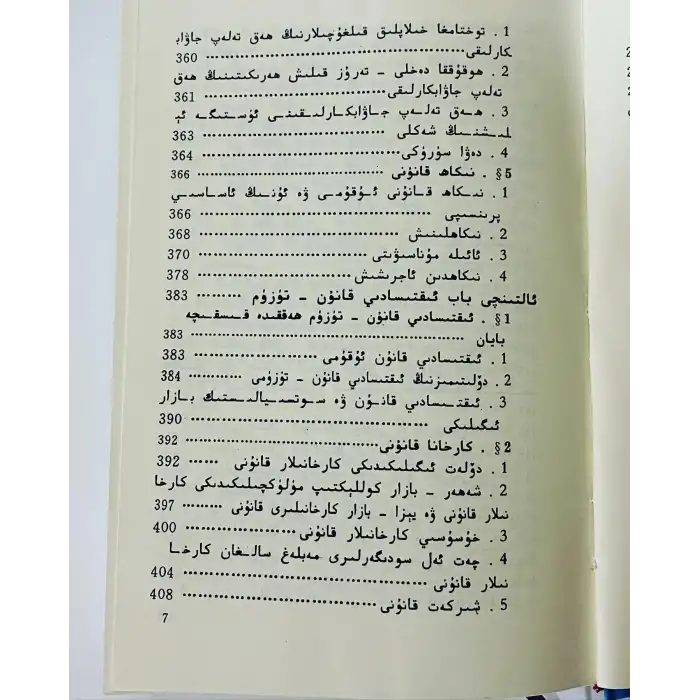 1 . توختامغا خىلاپلىق قىلغۇچىلارنىڭ ھەق تەلەپ جاۋاب
كارلىقى ················ 360
2 . ھوقۇققا دەخلى ـ تەرۇز قىلىش ھەرىكىتىنىڭ ھەق
تەلەپ جاۋابكارلىقى ················ 361
3 . ھەق تەلەپ جاۋابكارلىقىنى ئۈستىگە ئې
لىشنىڭ شەكلى ················ 363
4 . دەۋا سۈرۈكى ················ 364
§5 . نىكاھ قانۇنى ················ 366
1 . نىكاھ قانۇنى ئۇقۇمى ۋە ئۇنىڭ ئاساسىي
پرىنسىپى ················ 366
2 . نىكاھلىنىش ················ 368
3 . ئائىلە مۇناسىۋىتى ················ 370
4 . نىكاھدىن ئاجرىشىش ················ 378
ئالتىنچى باب ئىقتىسادىي قانۇن ـ تۈزۈم ········· 383
§1 . ئىقتىسادىي قانۇن ـ تۈزۈم ھەققىدە قىسقىچە
بايان ················ 383
1 . ئىقتىسادىي قانۇن ئۇقۇمى ················ 383
2 . دۆلىتىمىزنىڭ ئىقتىسادىي قانۇن ـ تۈزۈمى ············ 384
3 . ئىقتىسادىي قانۇن ۋە سوتسىيالىستىك بازار
ئىگىلىكى ················ 390
§2 . كارخانا قانۇنى ················ 392
1 . دۆلەت ئىگىلىكىدىكى كارخانىلار قانۇنى ······ 392
2 . شەھەر ـ بازار كوللېكتىپ مۈلۈكچىلىكىدىكى كارخا
نىلار قانۇنى ۋە يېزا ـ بازار كارخانىلىرى قانۇنى ········· 397
3 . خۇسۇسىي كارخانىلار قانۇنى ················ 400
4 . چەت ئەل سودىگەرلىرى مەبلەغ سالغان كارخا
نىلار قانۇنى ················ 404
5 . شىركەت قانۇنى ················ 408
7